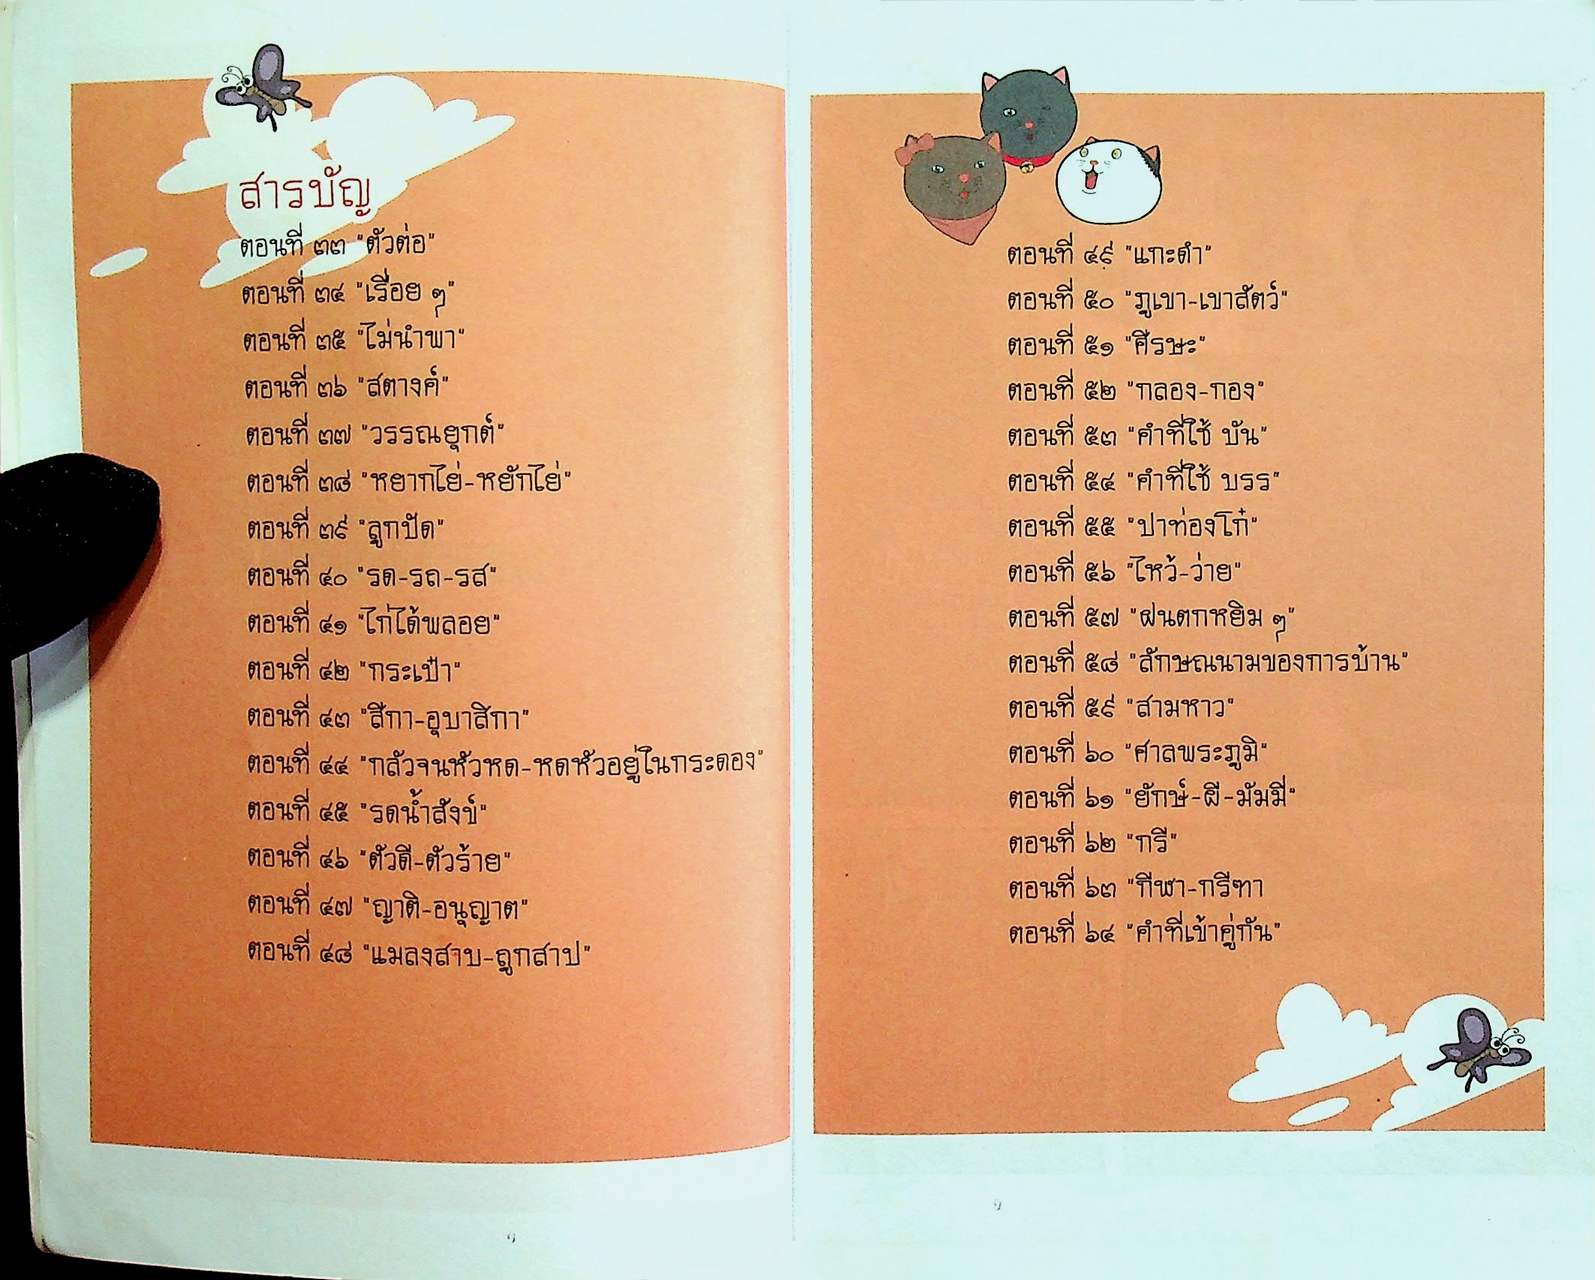 สารบัญ
ตอนที่ ๓๓ "ตัวต่อ"
ตอนที่ ๓๔ "เรื่อย ๆ"
ตอนที่ ๓๕ "ไม่นำพา"
ตอนที่ ๓๖ "สตางค์"
ตอนที่ ๓๗ "วรรณยุกต์"
ตอนที่ ๓๘ "หยากไย่-หยักไย่"
ตอนที่ ๓๙ "ลูกปัด"
ตอนที่ ๔๐ "รด-รถ-รส"
ตอนที่ ๔๑ "ไก่ได้พลอย"
ตอนที่ ๔๒ "กระเป๋า"
ตอนที่ ๔๓ "สีกา-อุบาสิกา"
ตอนที่ ๔๔ "กลัวจนหัวหด-หดหัวอยู่ในกระดอง"
ตอนที่ ๔๕ "รดน้ำสังข์"
ตอนที่ ๔๖ "ตัวดี-ตัวร้าย"
ตอนที่ ๔๗ "ญาติ-อนุญาต"
ตอนที่ ๔๘ "แมลงสาบ-ถูกสาป"
ตอนที่ ๔๙ "แกะดำ"
ตอนที่ ๕๐ "ภูเขา-เขาสัตว์"
ตอนที่ ๕๑ "ศีรษะ"
ตอนที่ ๕๒ "กลอง-กอง"
ตอนที่ ๕๓ "คำที่ใช้ บัน"
ตอนที่ ๕๔ "คำที่ใช้ บรร"
ตอนที่ ๕๕ "ปาท่องโก๋"
ตอนที่ ๕๖ "ไหว้-ว่าย"
ตอนที่ ๕๗ "ฝนตกหยิม ๆ"
ตอนที่ ๕๘ "ลักษณนามของการบ้าน"
ตอนที่ ๕๙ "สามหาว"
ตอนที่ ๖๐ "ศาลพระภูมิ"
ตอนที่ ๖๑ "ยักษ์-ผี-มัมมี่"
ตอนที่ ๖๒ "กรี"
ตอนที่ ๖๓ "กีฬา-กรีฑา
ตอนที่ ๖๔ "คำที่เข้าคู่กัน"